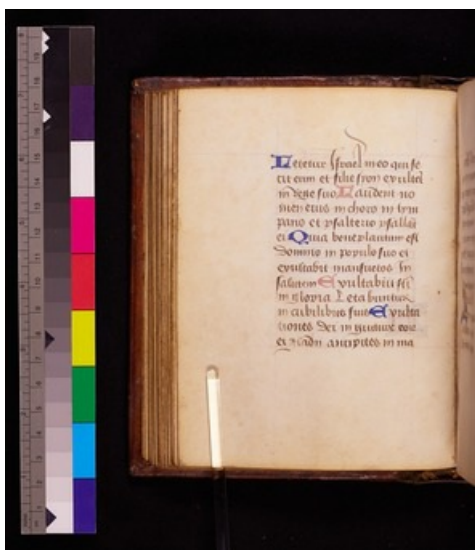 Letetur Israel in eo qui fe
cit eum et filie syon exultent
in rege suo Laudent no
men eius in choro in tym
pano et psalterio psallant
ei Quia beneplacitum est
domino in populo suo et
exultabit mansuetos In
salutem Exultabunt sancti
in gloria Letabuntur
in cubilibus suis Exulta
tiones dei in gutture eor
et gladii ancipites in ma